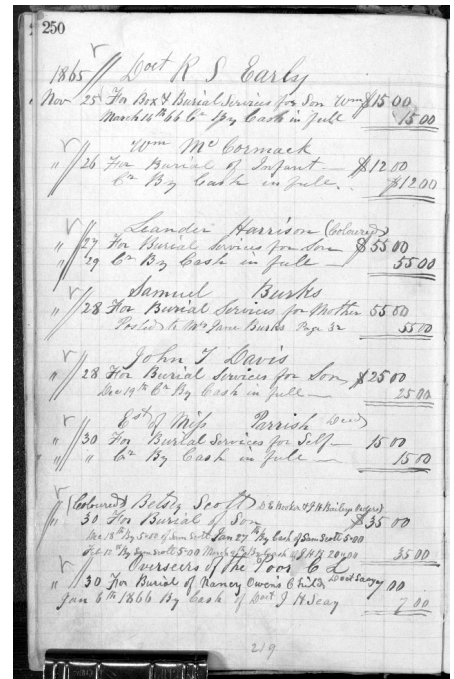 250
1865 Doct R S Early
Nov 25 For Box & Burial Services for Son Wm $15 00
March 14th 66 Cr By Cash in full 15 00
Wm McCormack
" 26 For Burial of Infant $12 00
Cr By Cash in full. $12 00
Leander Harrison (Coloured)
" 27 For Burial services for Son $55 00
" 29 Cr By Cash in full 55 00
Samuel Burks
" 28 For Burial Services for Mother 55 00
Posted to Mrs Jane Burks Page 32 55 00
John T Davis
" 28 For Burial Services for Son $25 00
Dec 19th Cr By Cash in full 25 00
Est of Miss Parrish Decd
" 30 For Burial Services for Self 15 00
" " Cr By Cash in full 15 00
(Coloured) Betsey Scott
" 30 For Burial of Son $35 00
Dec 18th By 5.00 of Sam Scott Jan 27th By Cash of Sam Scott 5.00
Feb 12th By Sam Scott 5.00 By Cash of J H H 20.00 35 00
Overseers of the Poor C L
" 30 For Burial of Nancy Owen's Child Doct Seay 7 00
Jan 6th 1866 By Cash of Doct J H Seay 7 00
219